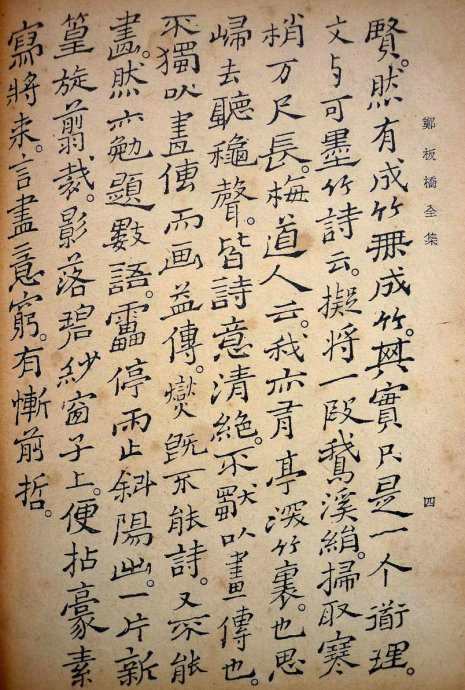 鄭板橋全集
四
賢。然有成竹無成竹。其實只是一个道理。
文与可墨竹詩云。擬將一段鵝溪絹。掃取寒
梢万尺長。梅道人云。我亦有亭深竹裏。也思
歸去聽穐聲。皆詩意清絕。不獨以畫傳也。
不獨以畫傳而画益傳。燮既不能詩。又不能
畫。然亦勉題數語。靁停雨止斜陽出。一片新
篁旋翦裁。影落碧紗窗子上。便拈豪素
寫將来。言盡意窮。有慚前哲。